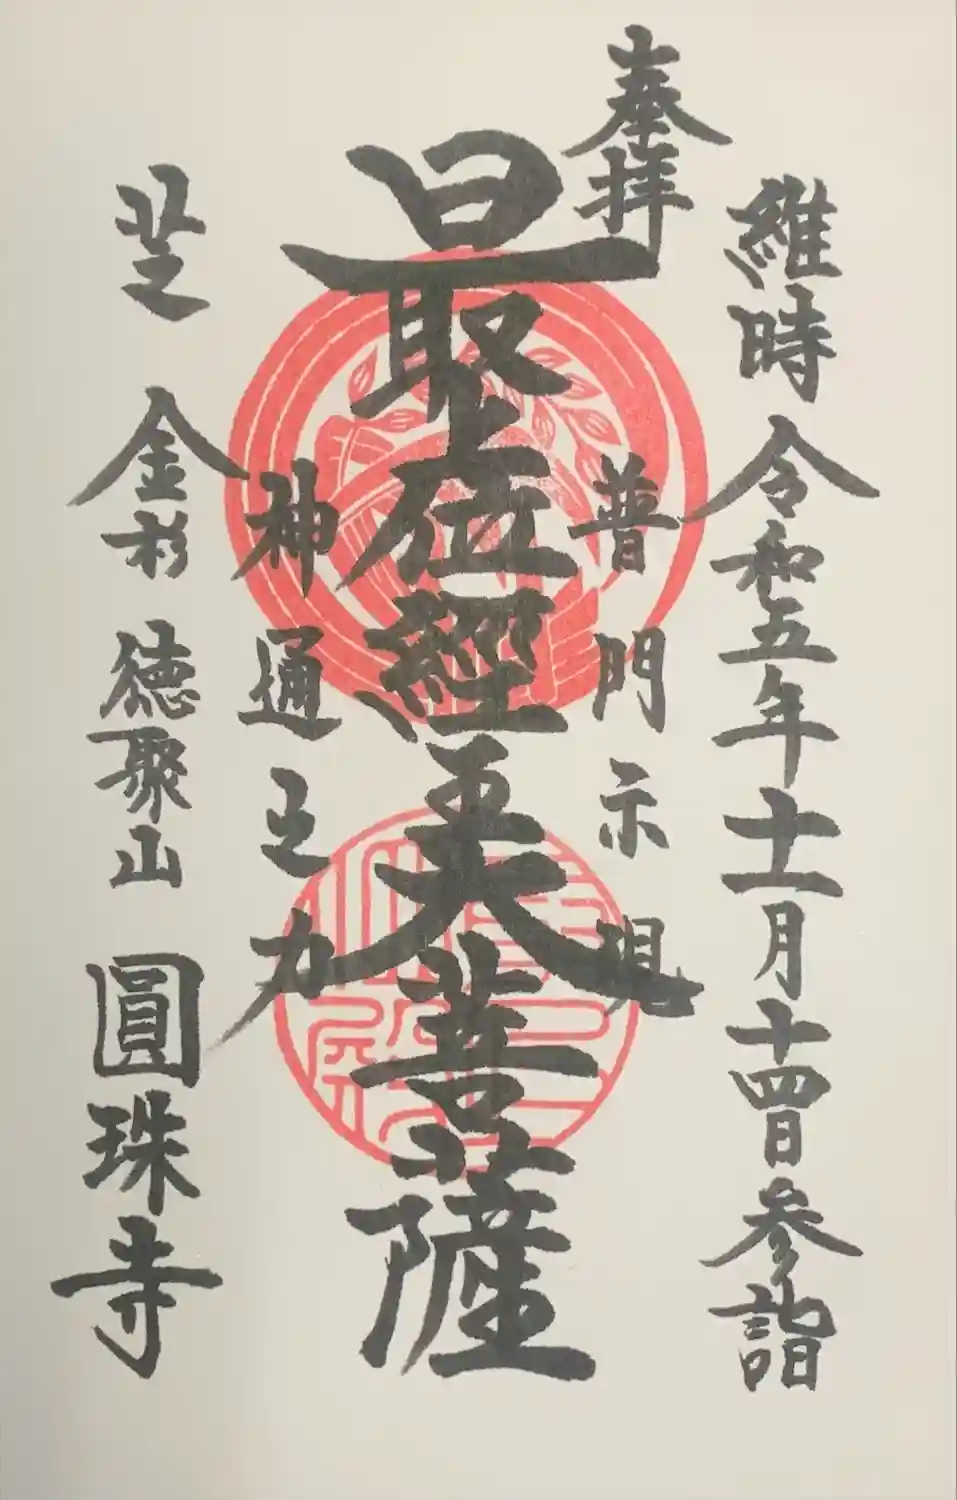 奉拝
維時 令和五年十一月十四日参詣
普門示現
最上位經王大菩薩
神通之力
芝 金杉 徳聚山 圓珠寺